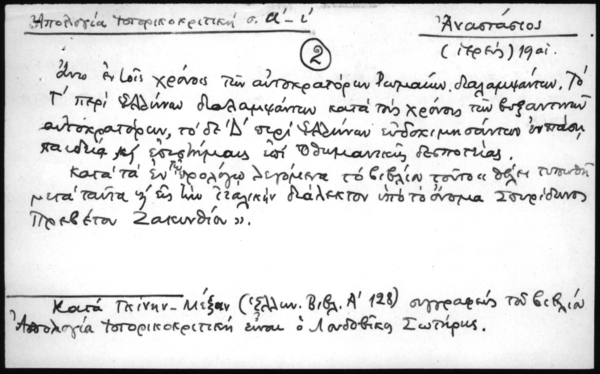 Ἀπολογία Ἱστορικοκριτική σ. α'-ι'
Ἀναστάσιος
(ἱερεύς) 19αι.
2
ἐν τοῖς χρόνοις τῶν αὐτοκρατόρων Ρωμαίων διαλαμψάντων. Τό
Γ' περί Ἑλλήνων διαλαμψάντων κατά τούς χρόνους τῶν βυζαντινῶν
αὐτοκρατόρων, τό δέ Δ' περί Ἑλλήνων εὐδοκιμησάντων ἐν πάσῃ
παιδείᾳ καί ἐπιστήμαις ἐπί Ὀθωμανικῆς δεσποτείας.
Κατά τά ἐν τῷ προλόγῳ λεγόμενα τό βιβλίον τοῦτο « θέλει τυπωθῆ
μετά ταῦτα καί εἰς τήν Ἰταλικήν διάλεκτον ὑπό τό ὄνομα Σπυρίδωνος
Πρεβέτου Ζακυνθίου ».
Κατά Γκίνην-Μέξαν (Ἑλλην. Βιβλ. Α' 128) συγγραφεύς τοῦ βιβλίου
Ἀπολογία Ἱστορικοκριτική εἶναι ὁ Λουδοβῖκος Σωτήρης.